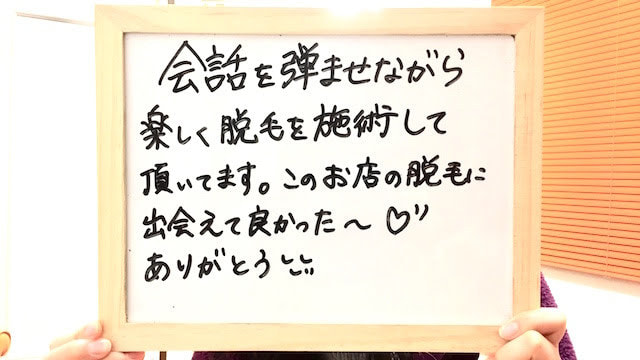 会話を弾ませながら
楽しく脱毛を施術して
頂いてます。このお店の脱毛に
出会えて良かった〜♡
ありがとう